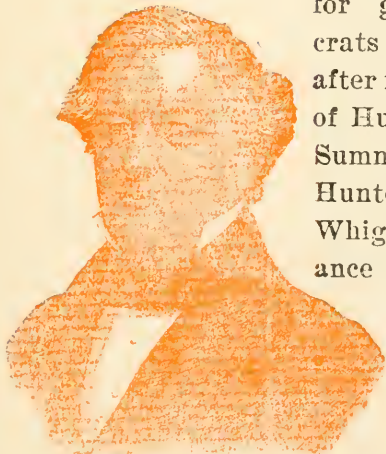 for g
crats
after
of Hu
Sumn
Hunt
Whig
ance